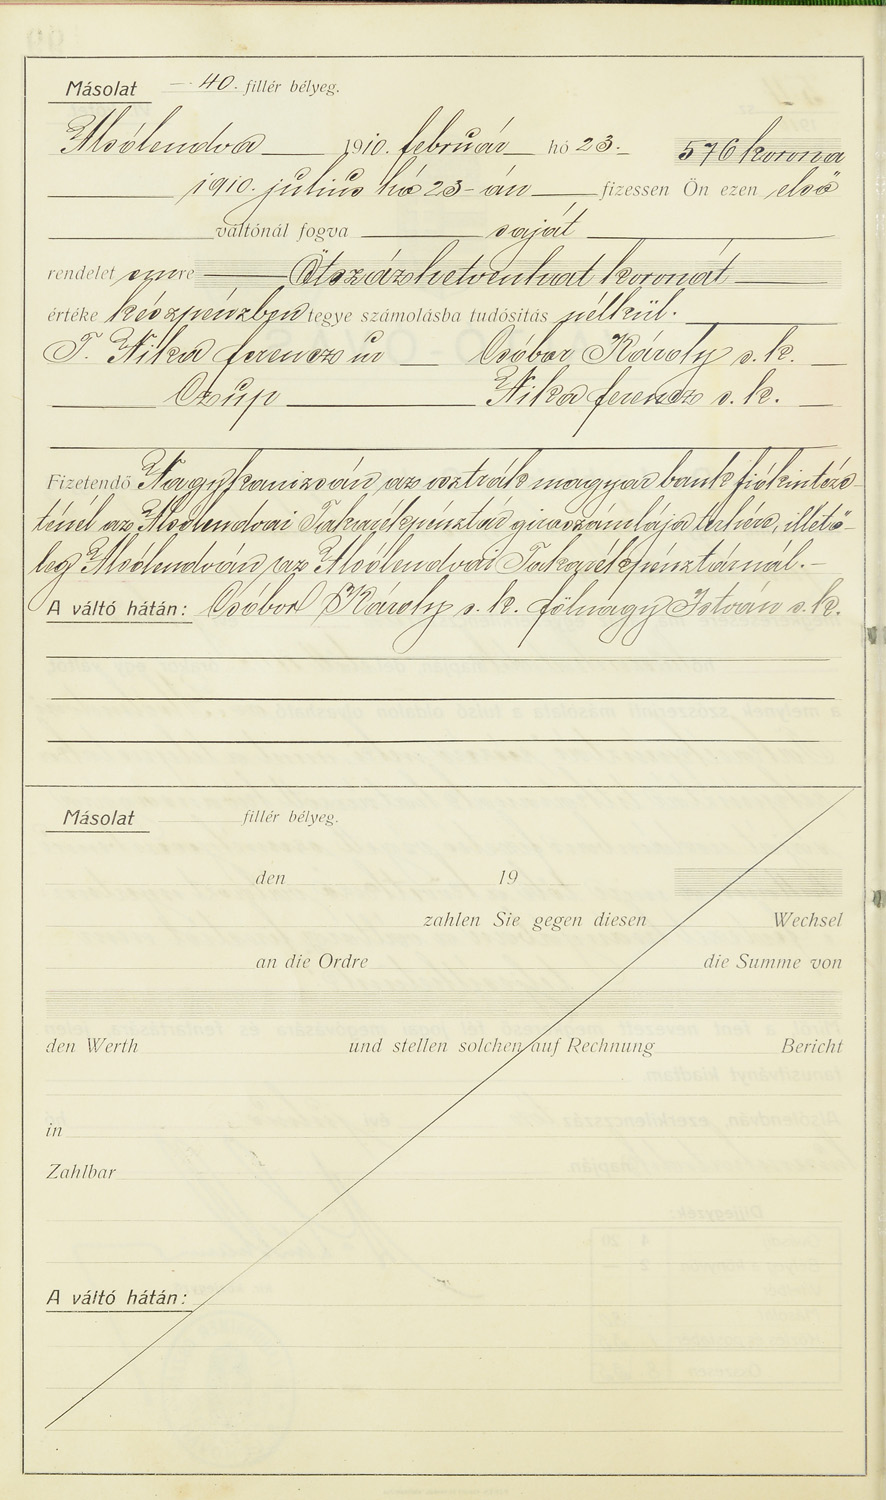 Másolat — 40. fillér bélyeg.
Alsólendva 1910. február hó 23. 576 korona
1910. julius hó 23-án fizessen Ön ezen első
váltónál fogva saját
rendelet emre Ötszázhetvenhat koronát
értéke készpénzben tegye számolásba tudósítás nélkül.
T. Nika ferencz ur Csóbor Károly s. k.
Czup Nika ferencz s. k.
Fizetendő Nagykanizsán az osztrák magyar bank fiókintéze-
ténél az Alsólendvai Takarékpénztár giroszámlája terhére, illető-
leg Alsólendván az Alsólendvai Takarékpénztárnál.-
A váltó hátán: Csóbor Károly s. k. fölnagy István s. k.
Másolat fillér bélyeg.
den 19
zahlen Sie gegen diesen Wechsel
an die Ordre die Summe von
den Werth und stellen solchen auf Rechnung Bericht
in
Zahlbar
A váltó hátán: